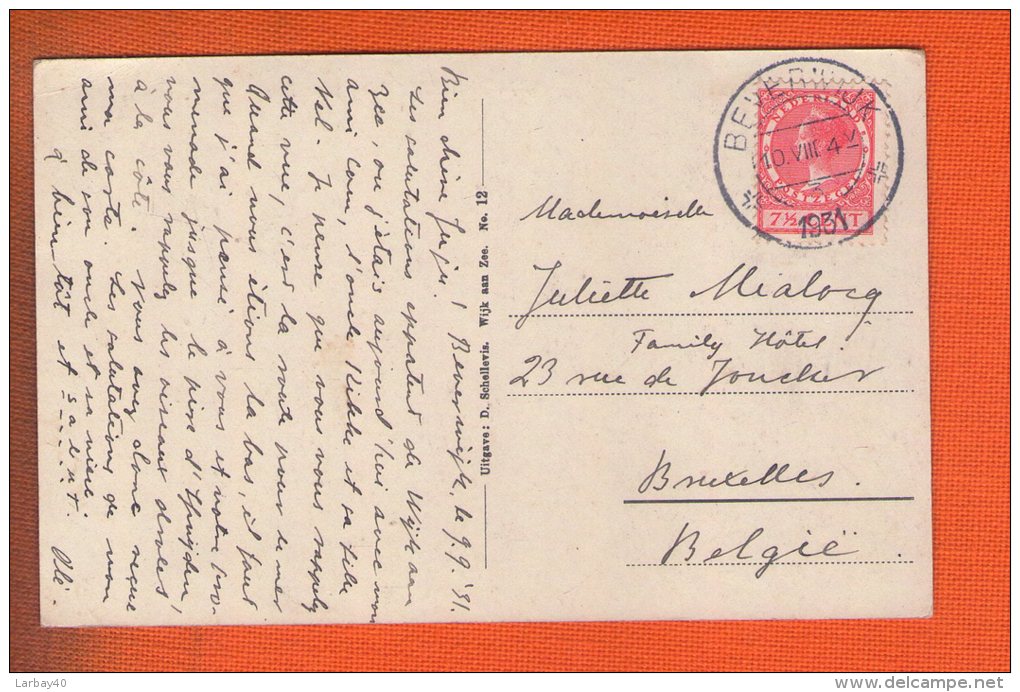 Bien chère Juju! Beverwijk, le 9.9.'31.
Les salutations de Wijk aan
Zee, ou j'étais aujourd'hui avec mon
ami Com, l'oncle Kikke et sa fille
Nel. Je pense que vous vous rappelez
cette vue, c'est la route pour la mer
Quand nous étions la bas, il faut
que j'ai pensé à vous et notre pro-
menade jusque le piere d'IJmuiden,
vous vous rappelez les oiseaux droles,
à la côte. Vous avez donc reçue
ma carte. Les salutations de mon
ami de son oncle et sa nièce.
à bien tôt et salut. Olé.
Uitgave: D. Schellevis. Wijk aan Zee. No. 12
BEVERWIJK
10.VIII 4-V
1931
NEDERLAND
POSTZEGEL
7½ CENT
Mademoiselle
Juliette Mialocq
Family Hôtel.
23 rue de Joncker
Bruxelles.
België.
Larbay40
http://www.delcampe.net